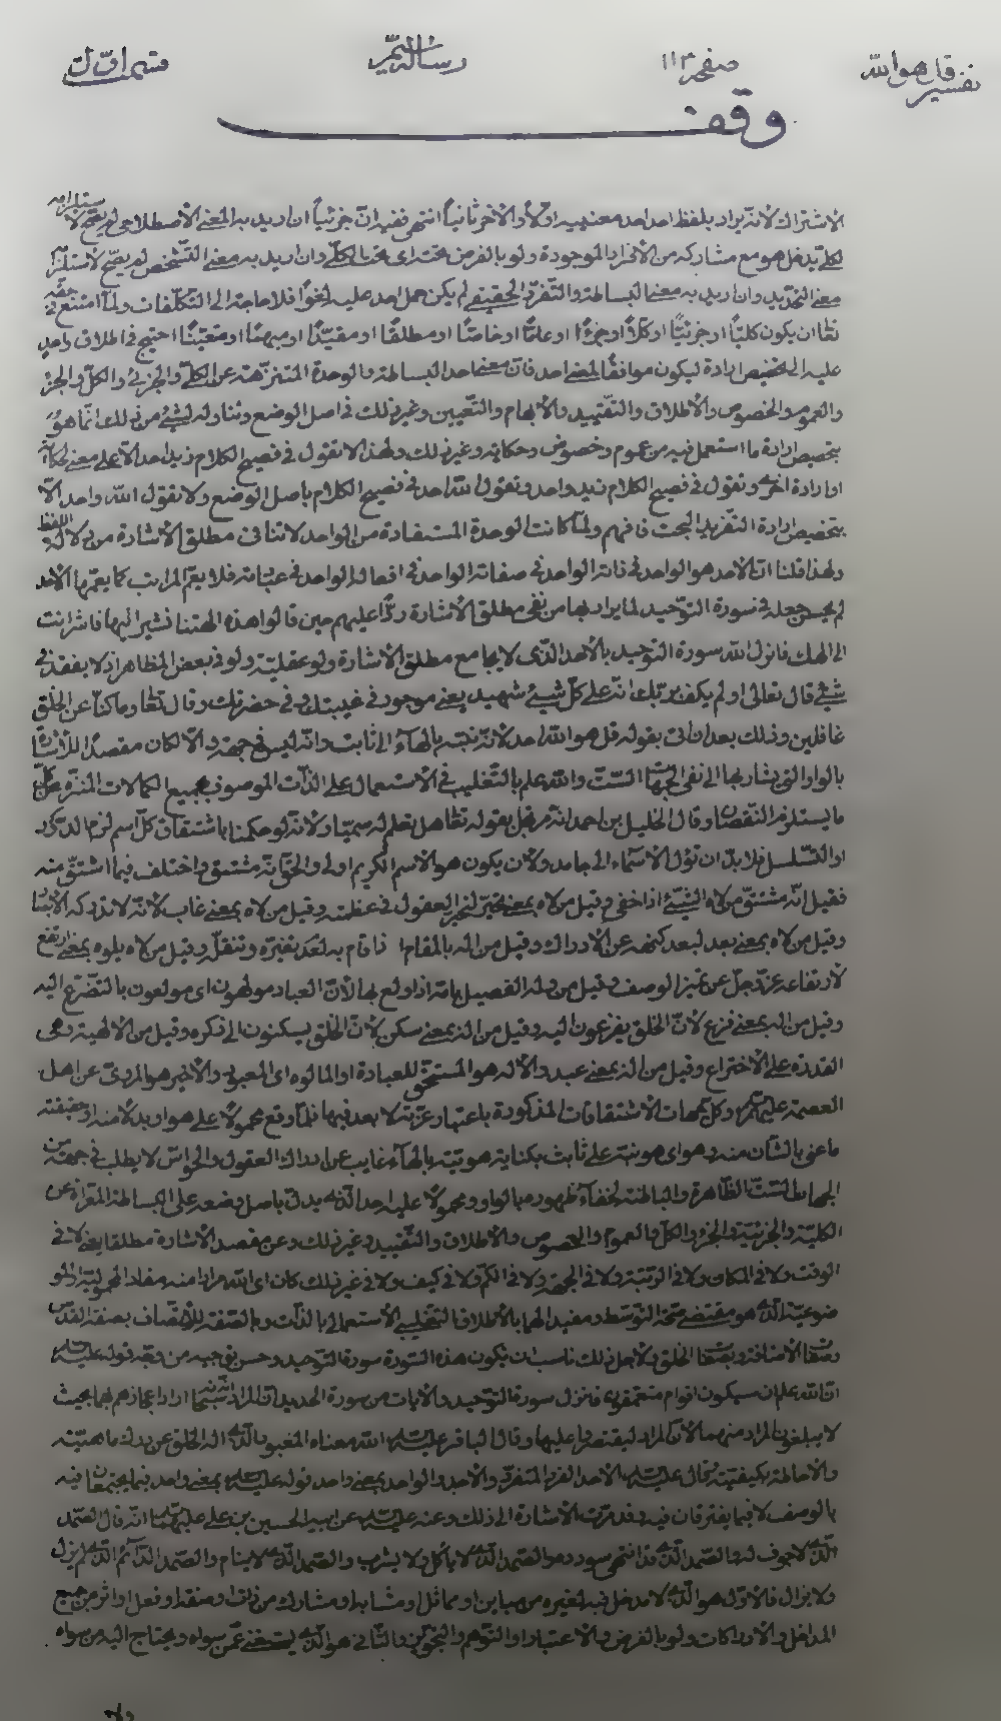 تفسير قل هو الله
صفحه ١١٣
رسالة
قسمت اول
وقف
الاشتراك لانه يراد بلفظ احد احد معنييه اولاً والاخر ثانياً انتهى ففيه انّ جزئياً ان اريد به المعنى الاصطلاحى لم يصحّ لا ستلزامه
لكلّ يدخل هو مع مشاركه من الافراد الموجودة ولو بالفرض تحته اى تحت الكلّى وان اريد به معنى التشخص لم يصحّ لاستلزام
معنى التحديد وان اريد به معنى البساطة والتفرّد الحقيقى لم يكن حمل احد عليه لغواً فلا حاجة الى التكلّفات ولمّا امتنع فى حقّه
تعالى ان يكون كليّاً او جزئيّاً او كلّاً او جزءاً او عامّاً او خاصّاً او مطلقاً او مقيّداً او مبهماً او متعيّناً احتيج فى اطلاق واحد
عليه الى تخصيص ارادة ليكون موافقاً لمعنى احد فانّ معنى احد البساطة والوحدة المتنزّهة عن الكلّى والجزئى والكلّ والجزء
والعموم والخصوص والاطلاق والتقييد والابهام والتعيين وغير ذلك فى اصل الوضع وتناوله لشىء من ذلك انّما هو
بتخصيص ارادة ما استعمل فيه من عموم وخصوص وحكاية وغير ذلك ولهذا لا تقول فى فصيح الكلام زيد احد الّا على معنى الحكاية
او ارادة اخرى وتقول فى فصيح الكلام زيد واحد وتقول الله احد فى فصيح الكلام باصل الوضع ولا تقول الله واحد الّا
بتخصيص ارادة التفريد البحت فافهم ولمّا كانت الوحدة المستفادة من الواحد لا تنافى مطلق الاشارة من دلالة اللفظ
ولهذا قلنا انّ الاحد هو الواحد فى ذاته الواحد فى صفاته الواحد فى افعاله الواحد فى عبادته فلا يعمّ المراتب كما يعمّها الاحد
لم يحسن جعله فى سورة التوحيد لما يراد بها من نفى مطلق الاشارة ردّاً عليهم حين قالوا هذه الهتنا نشير اليها فاشر انت
الى الهك فانزل الله سورة التوحيد بالاحد الذى لا يجامع مطلق الاشارة ولو عقلية ولو فى بعض المظاهر اذ لا يفقد فى
شىء قال تعالى اولم يكف بربّك انّه على كلّ شىء شهيد يعنى موجود فى غيبتك وفى حضرتك وقال تعالى وما كنّا عن الخلق
غافلين وذلك بعد ان اتى بقوله قل هو الله احد لانّه نبّه بالهاء الى ثابت وانّه ليس فى جهة والّا لكان مقصداً للاشارة
بالواو التى يشار بها الى نفى الجهات الستّ والله علم بالتغليب فى الاستعمال على الذات الموصوف بجميع الكمالات المنزّه عن كلّ
ما يستلزم النقص وقال الخليل بن احمد انّه مرتجل بقوله تعالى هل تعلم له سميّاً ولانّه لو حكمنا باشتقاق كلّ اسم لزم الدور
او التسلسل فلا بدّ ان تؤل الاسماء الى جامد ولان يكون هو الاسم الكريم اولى والحقّ انّه مشتق واختلف فيما اشتقّ منه
فقيل انّه مشتقّ من لاه الشىء اذا خفى وقيل من لاه بمعنى تحيّر لتحيّر العقول فى عظمته وقيل من لاه بمعنى غاب لانّه لا تدركه الابصار
وقيل من لاه بمعنى بعد لبعد كنهه عن الادراك وقيل من اله بالمقام اذا قام به لعدم تغيّره وتنقلّه وقيل من لاه يلوه بمعنى ارتفع
لارتفاعه عزّ وجلّ عن تميز الوصف وقيل من وله الفصيل بامّه اذا ولع بها لانّ العباد مولهون اى مولعون بالتضرّع اليه
وقيل من اله بمعنى فزع لانّ الخلق يفزعون اليه وقيل من اله بمعنى سكن لانّ الخلق يسكنون الى ذكره وقيل من الالهية وهى
القدرة على الاختراع وقيل من اله بمعنى عبد والاله هو المستحقّ للعبادة او المالوه اى المعبود والاخير هو المروىّ عن اهل
العصمة عليهم السلام وكلّ جهات الاشتقاقات المذكورة باعتبار عربيّة لا بعد فيها فلمّا وقع محمولاً على هو او بدلاً منه او حقيقته
ما عنى بالشأن منه وهو اى هو نبّه على ثابت بكناية هويّته بالهاء غايب عن ادراك العقول والحواسّ لا يطلب فى جهة من
الجهات الستّ الظاهرة والباطنة لخفاء ظهوره بالواو ومحمولاً عليه احد الذى يدلّ باصل وضعه على البساطة المعرّاة عن
الكلية والجزئية والجزء والكلّ والعموم والخصوص والاطلاق والتقييد وغير ذلك وعن مقصد الاشارة مطلقا يعنى لا فى
الوقت ولا فى المكان ولا فى الرتبة ولا فى الجهة ولا فى الكم ولا فى كيف ولا فى غير ذلك كان اى الله مراداً منه مفاد المحمولية والمو
ضوعية الذى هو مقتضى صحّة التوسّط ومفيد الهما بالاطلاق التغليبى الاستعمالى بالذات وبالصفة للاتّصاف بصفة القدس
وصفة الاضافة وبصفة الخلق ولاجل ذلك ناسب ان يكون هذه السورة سورة التوحيد وحسن توجيه من وجّه قوله عليه السلام
انّ الله علم ان سيكون اقوام متعمّقون فانزل سورة التوحيد والايات من سورة الحديد انّ المراد انّه سبحانه اراد اعجازهم بها بحيث
لا يبلغون المراد منهما لانّ المراد ليقتصروا عليها وقال الباقر عليه السلام الله معناه المعبود الذى اله الخلق عن درك ماهيّته
والاحاطة بكيفيّته وقال عليه السلام الاحد الفرد المتفرّد والاحد والواحد بمعنى واحد قوله عليه السلام بمعنى واحد فيما يجتمعان فيه
بالوصف لا فيما يفترقان فيه وقد مرّت الاشارة الى ذلك وعنه عليه السلام عن ابيه الحسين بن على عليهما السلام انّه قال الصمد
الذى لا جوف له والصمد الذى قد انتهى سودده والصمد الذى لا يأكل ولا يشرب والصمد الذى لا ينام والصمد الدائم الذى لم يزل
ولا يزال فالاوّل هو الذى لا مدخل فيه لغيره من مباين او مماثل او مشابه او مشارك من ذات او صفة او فعل او اثر من جميع
المداخل والادراكات ولو بالفرض والاعتبار او التوهم والتجويز والثانى هو الذى يستغنى عمّن سواه ويحتاج اليه من سواه
ولا